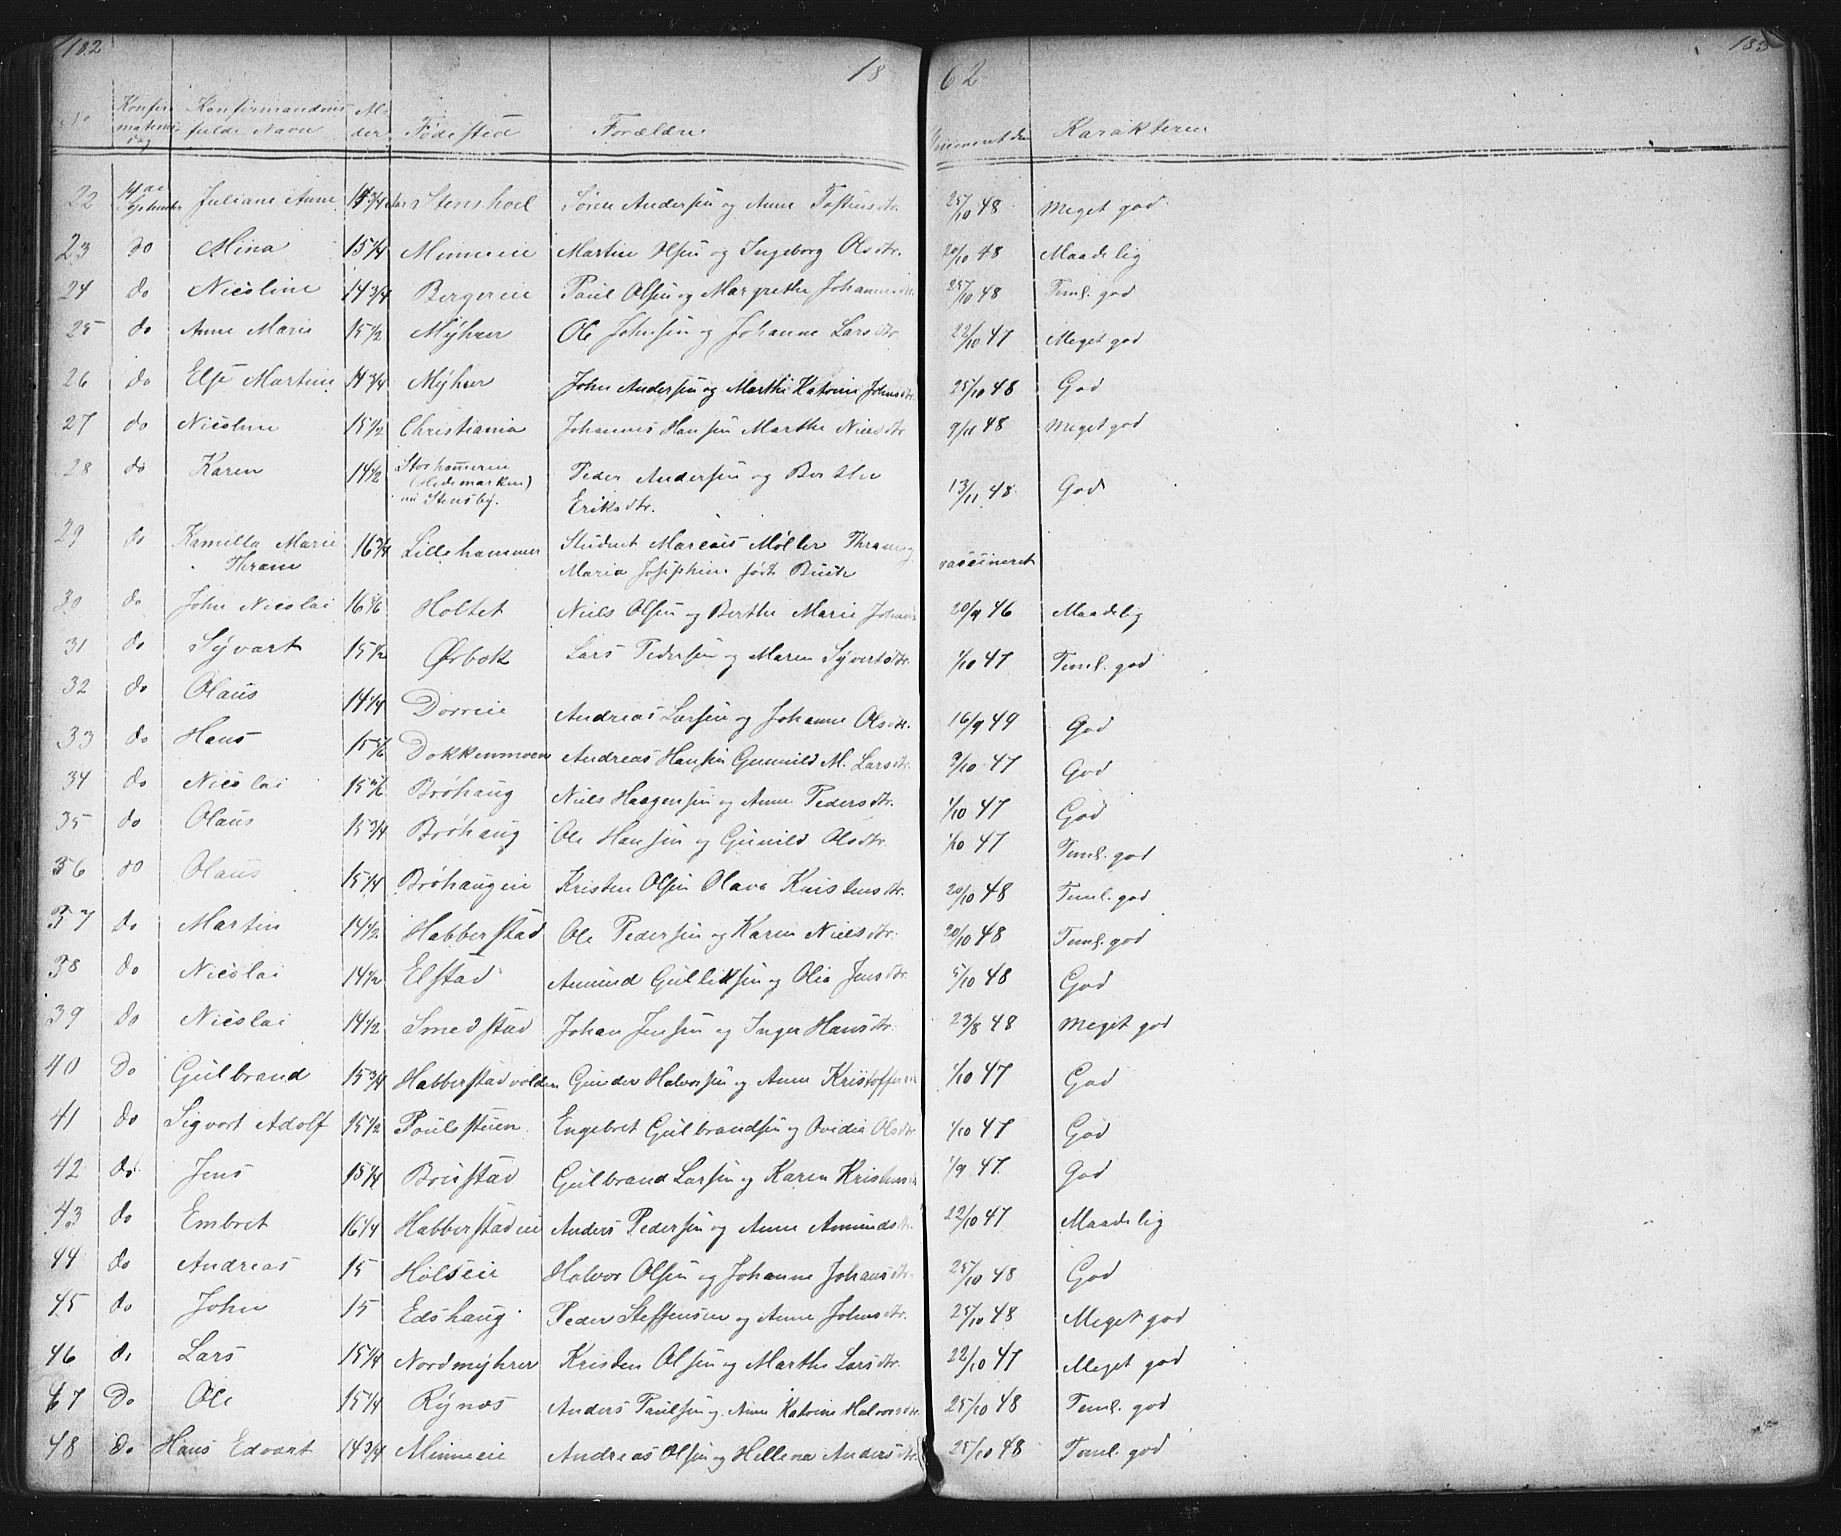 182
183
18 62
No Konfirmations dag Konfirmandens fulde Navn Alder Fødested Forældre Vaccineret den Karakteren
22 14de September Juliane Anne 14 3/4 Aar Stenshoel Søren Andersen og Anne Tostensdtr. 25/10 48 Meget god
23 do Mina 15 1/4 Minneeie Martin Olsen og Ingeborg Olsdtr. 20/10 48 Maadelig
24 do Nicoline 14 3/4 Bergereie Paul Olsen og Margrethe Johannesdtr. 25/10 48 Teml. god
25 do Anne Marie 15 1/2 Mÿhrer Ole Johnsen og Johanne Larsdtr. 22/10 47 Meget god
26 do Else Martine 14 3/4 Mÿhrer John Andersen og Marthe Katrine Johnsdtr. 25/10 48 God
27 do Nicoline 15 1/2 Christiania Johannes Hansen Marthe Nielsdtr 9/11 48 Meget god
28 do Karen 14 1/2 Storhammereie (Hedemarken) nu Stensby. Peder Andersen og Berthe
Eriksdtr. 13/11 48 God
29 do Kamilla Marie Thrane 16 3/4 Lillehammer Student Marcus Møller Thrane og
Maria Josephine født Buch vaccineret
30 do John Nicolai 16 5/6 Holtet Niels Olsen og Berthe Marie 20/9 46 Maadelig
31 do Sÿvart 15 1/2 Ørbæk Lars Pedersen og Maren Sÿvertsdtr. 1/10 47 Teml. god
32 do Olaus 14 1/4 Dorreie Andreas Larsen og Johanne Olsdtr. 16/9 49 God
33 do Hans 15 5/6 Dokkenmoen Andreas Hansen Gunnild M. Larsdtr. 9/10 47 God
34 do Nicolai 15 5/6 Brøhaug Niels Haagensen og Anne Pedersdtr. 1/10 47 God
35 do Olaus 15 3/4 Brøhaug Ole Hansen og Gunild Olsdtr. 1/10 47 Teml. god
36 do Olaus 15 1/4 Brøhaugeie Kristen Olsen Olava Kristensdtr. 20/10 48 Teml. god
37 do Martin 14 1/2 Habberstad Ole Pedersen og Karen Nielsdtr. 20/10 48 Teml. god
38 do Nicolai 14 1/2 Elstad Amund Gulliksen og Olia Jensdtr. 5/10 48 God
39 do Nicolai 14 1/2 Smedstad Johan Jensen og Inger Hansdtr. 23/8 48 Meget god
40 Do Gulbrand 15 3/4 Habberstadvolden Gunder Halvorsen og Anne Kristoffersdtr 1/10 47 God
41 do Sigvart Adolf 15 1/2 Paulsteien Engebret Gulbrandsen og Ovidia Olsdtr 1/10 47 God
42 do Jens 15 1/4 Brustad Gulbrand Larsen og Karen Kristensdtr 1/9 47 God
43 do Embret 16 1/4 Habberstadeie Anders Pedersen og Anne Amundsdtr 22/10 47 Maadelig
44 do Andreas 15 Holseie Halvor Olsen og Johanne Johansdtr. 25/10 48 God
45 do John 15 Edshaug Peder Steffensen og Anne Johnsdtr. 25/10 48 Meget god
46 do Lars 15 1/4 Nordmÿhrer Kristen Olsen og Marthe Larsdtr. 22/10 47 Meget god
47 Do Ole 15 1/4 Rÿnæs Anders Paulsen og Anne Katrine Halvorsdtr 25/10 48 Teml. god
48 do Hans Edvart 14 3/4 Minneeie Andreas Olsen og Hellena Andersdtr 25/10 48 Teml. god